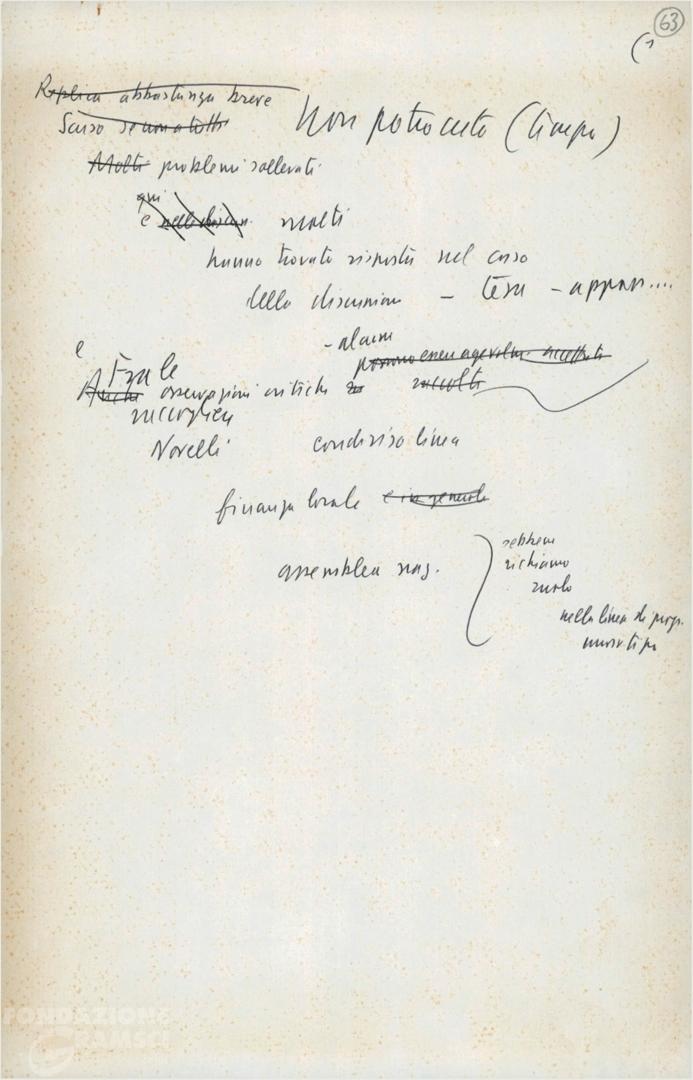 63
(1
Replica abbastanza breve
Scuso se non a tutti
Non potrò certo (tempo)
Molti problemi sollevati
qui
e molti
hanno trovato risposta nel corso
della discussione – tesa – appas....
e
– alcuni
Tra le
possono essere agevolm. accettati
Anche osservazioni critiche accolte
raccogliere
Novelli condiviso linea
finanza locale e in generale
assemblea naz.
sebbene
richiamo
ruolo
nella linea di prop.
nuovo tipo
FONDAZIONE
GRAMSCI